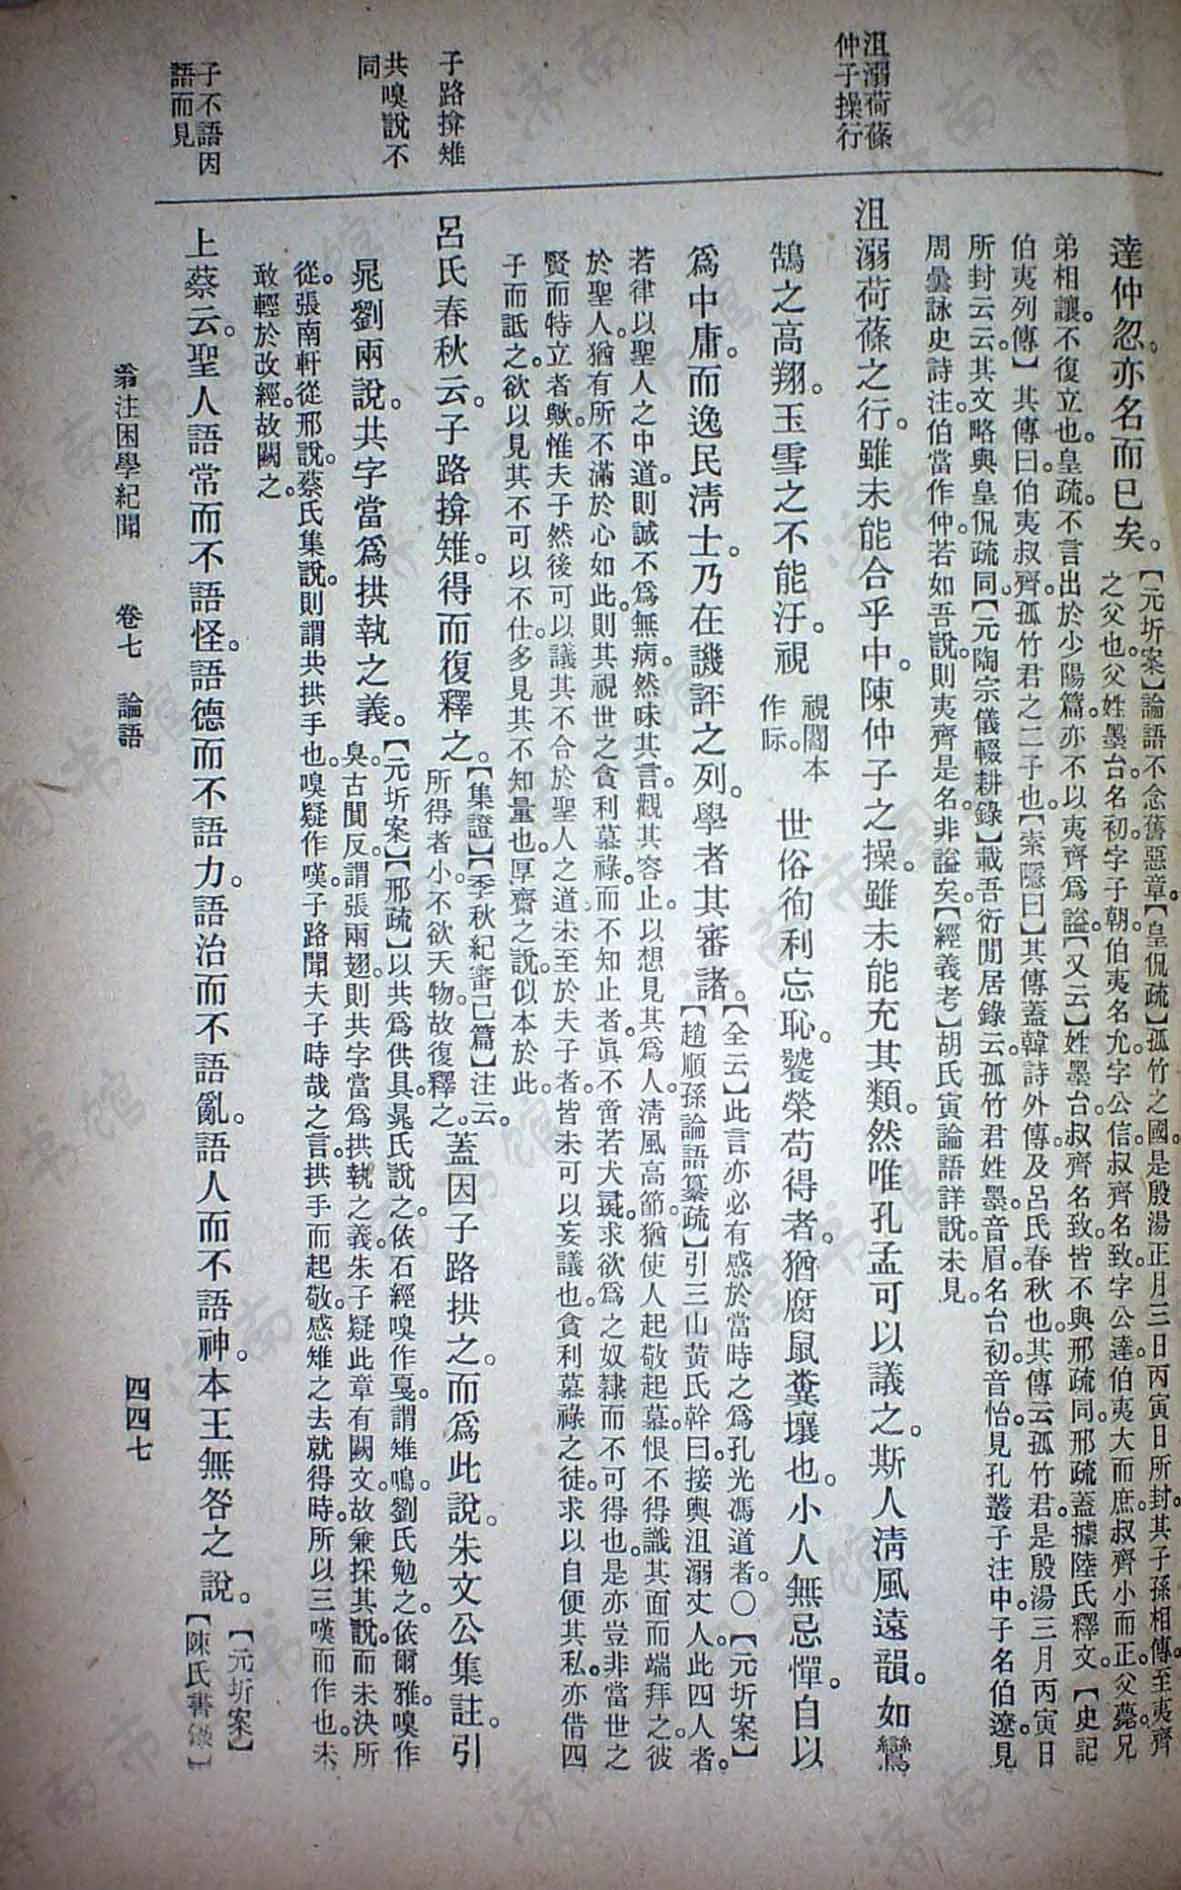 沮溺荷蓧
仲子操行
子路拚雉
共嗅說不
同
子不語因
語而見
達仲忽亦名而已矣。【元圻案】論語不念舊惡章【皇侃疏】孤竹之國是殷湯正月三日丙寅日所封其子孫相傳至夷齊
之父也父姓墨台名初字子朝伯夷名允字公信叔齊名致字公達伯夷大而庶叔齊小而正父薨兄
弟相讓不復立也皇疏不言出於少陽篇亦不以夷齊爲謚【又云】姓墨台叔齊名致皆不與邢疏同邢疏蓋據陸氏釋文【史記
伯夷列傳】其傳曰伯夷叔齊孤竹君之二子也【索隱曰】其傳蓋韓詩外傳及呂氏春秋也其傳云孤竹君是殷湯三月丙寅日
所封云云其文略與皇侃疏同【元陶宗儀輟耕錄】載吾衍閒居錄云孤竹君姓墨音眉名台初音怡見孔叢子注中子名伯遼見
周曇詠史詩注伯當作仲若如吾說則夷齊是名非謚矣【經義考】胡氏寅論語詳說未見。
沮溺荷蓧之行。雖未能合乎中。陳仲子之操。雖未能充其類。然唯孔孟可以議之。斯人清風遠韻。如鸞
鵠之高翔。玉雪之不能汙。視 視閣本作眎。 世俗徇利忘恥。饕榮苟得者。猶腐鼠糞壤也。小人無忌憚。自以
爲中庸。而逸民清士。乃在譏評之列。學者其審諸。【全云】此言亦必有感於當時之爲孔光馮道者。○【元圻案】
【趙順孫論語纂疏】引三山黃氏幹曰。接輿沮溺丈人。此四人者。
若律以聖人之中道。則誠不爲無病。然味其言。觀其容止。以想見其爲人。清風高節。猶使人起敬起慕。恨不得識其面而端拜之。彼
於聖人。猶有所不滿於心如此。則其視世之貪利慕祿。而不知止者。眞不啻若犬彘。求欲爲之奴隸而不可得也。是亦豈非當世之
賢而特立者歟。惟夫子然後可以議其不合於聖人之道。未至於夫子者。皆未可以妄議也。貪利慕祿之徒。求以自便其私。亦借四
子而詆之。欲以見其不可以不仕。多見其不知量也。厚齋之說。似本於此。
呂氏春秋云。子路揜雉。得而復釋之。【集證】【季秋紀審己篇】注云。所得者小。不欲夭物。故復釋之。蓋因子路拱之。而爲此說。朱文公集註。引
晁劉兩說。共字當爲拱執之義。【元圻案】【邢疏】以共爲供具。晁氏說之。依石經嗅作戛。謂雉鳴。劉氏勉之。依爾雅。嗅作
臭。古閴反。謂張兩翅。則共字當爲拱執之義。朱子疑此章有闕文。故兼採其說。而未決所
從。張南軒從邢說。蔡氏集說。則謂共拱手也。嗅疑作嘆。子路聞夫子時哉之言。拱手而起敬。感雉之去就得時。所以三嘆而作也。未
敢輕於改經。故闕之。
上蔡云。聖人語常而不語怪。語德而不語力。語治而不語亂。語人而不語神。本王無咎之說。【元圻案】
【陳氏書錄】
翁注困學紀聞 卷七 論語
四四七